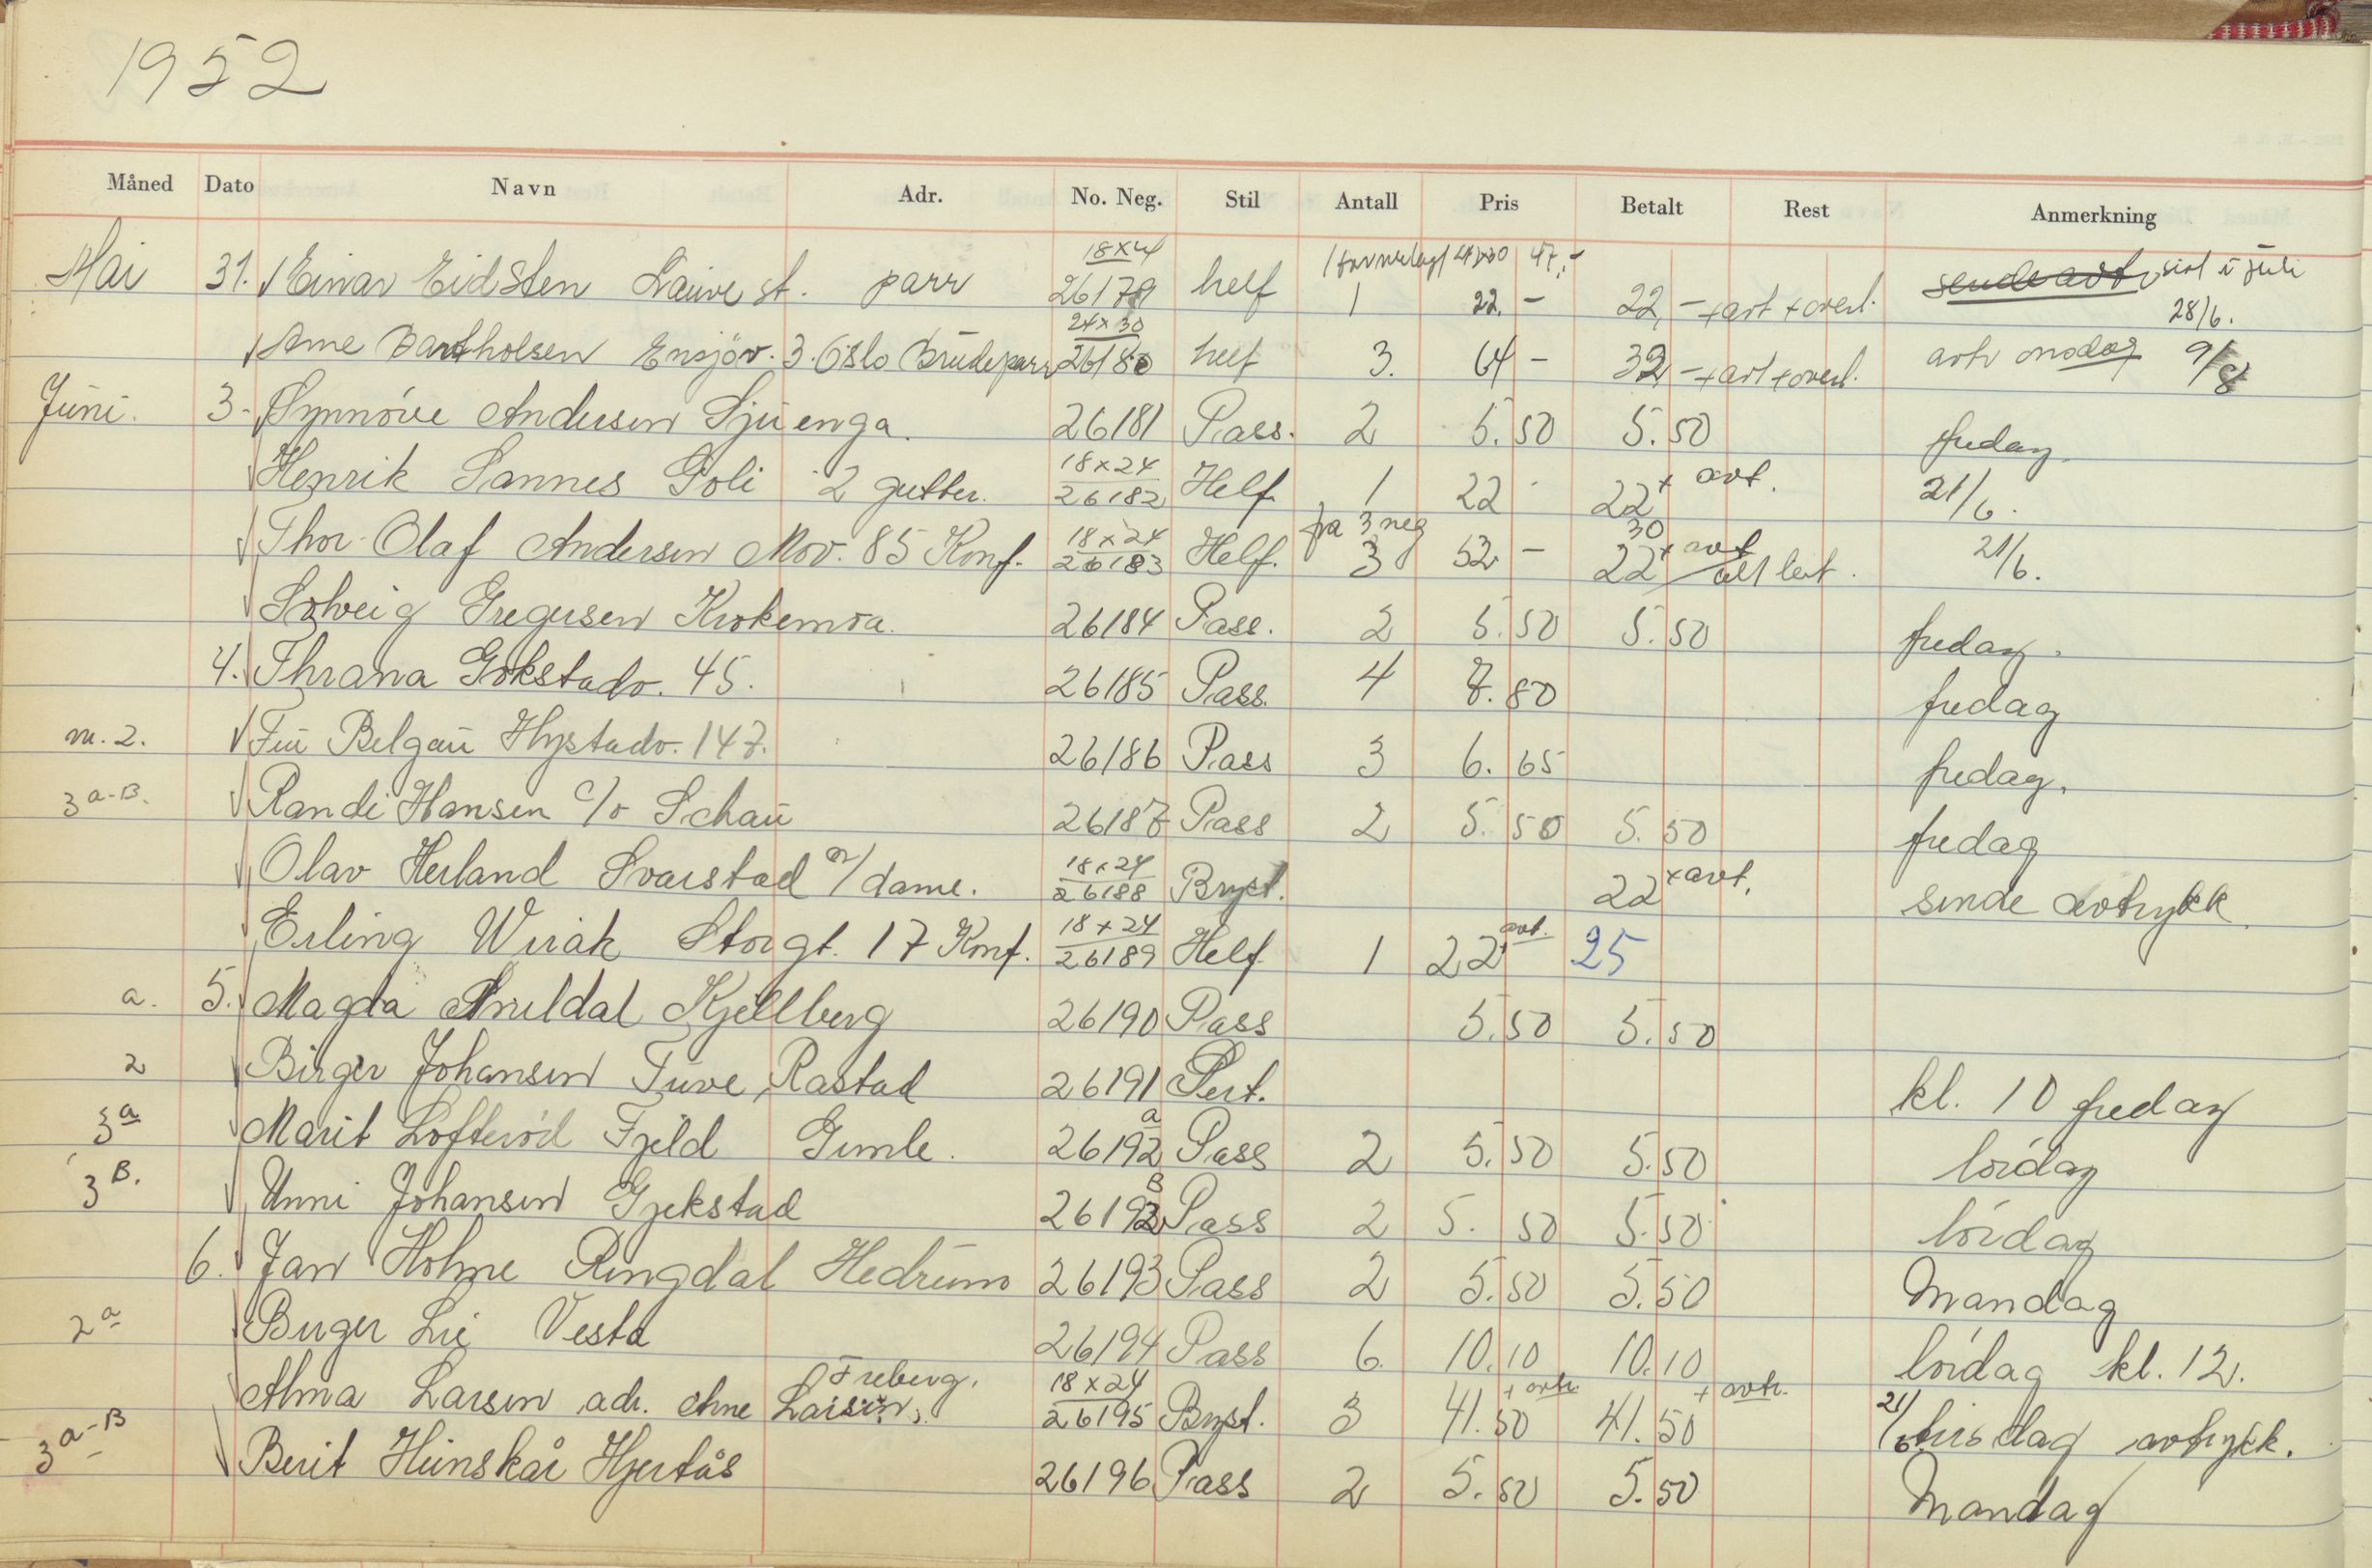 1952
Måned Dato Navn Adr. No. Neg. Stil Antall Pris Betalt Rest Anmerkning
Mai 31. Einar Eidsten Lauve st. parr 18x24 26179 helf 1 22,- 22,- + avt + overl. sende avt, sist i juli 28/6.
Arne Bartholsen Ensjøv. 3. Oslo Brudeparr 24x30 26180 helf 3. 64 - 32,- + avt + overl. avtr onsdag 9/8
Juni. 3. Synnöve Andersen Sjuenga. 26181 Pass. 2 5.50 5.50 fredag.
Henrik Sannes Goli 2 gutter. 18x24 26182 Helf 1 22 22 + avt. 21/6.
Thor Olaf Andersen Mov. 85 Konf. 18x24 26183 Helf. fra 3 neg 3 52 - 30 22 + avt alt bet. 21/6.
Solveig Gregersen Krokemoa. 26184 Pass. 2 5.50 5.50 fredag.
4. Thrana Gokstadv. 45. 26185 Pass. 4 7.80 fredag
m. 2. Fru Belgau Hystadv. 147. 26186 Pass 3 6.65 fredag.
3 a-B. Randi Hansen c/o Schau 26187 Pass 2 5.50 5.50 fredag
Olav Herland Svarstad m/dame. 18x24 26188 Bryst. 22 + avt. sende avtrykk
Erling Wirak Storgt. 17 Konf. 18x24 26189 Helf 1 22 + avt. 25
a. 5. Magda Kjellberg 26190 Pass 5.50 5.50
2 Birger Johansen Tuve, Rastad 26191 Port. kl. 10 fredag
3 a Marit Lofterød Fjeld Gimle. 26192 a Pass 2 5.50 5.50 lördag
3 B. Unni Johansen Gjekstad 26192 B Pass 2 5.50 5.50 lördag
6. Jan Holme Ringdal Hedrum 26193 Pass 2 5.50 5.50 Mandag
2 a Birger Lie Vesta 26194 Pass 6. 10.10 10.10 lördag kl. 12.
Alma Larsen adr. Arne Larsen, Freberg. 18x24 26195 Bryst. 3 41.50 + avtr. 41.50 + avtr. 21/6 tirsdag avtrykk.
3 a-B Berit Heinskår Hjertås 26196 Pass 2 5.50 5.50 Mandag